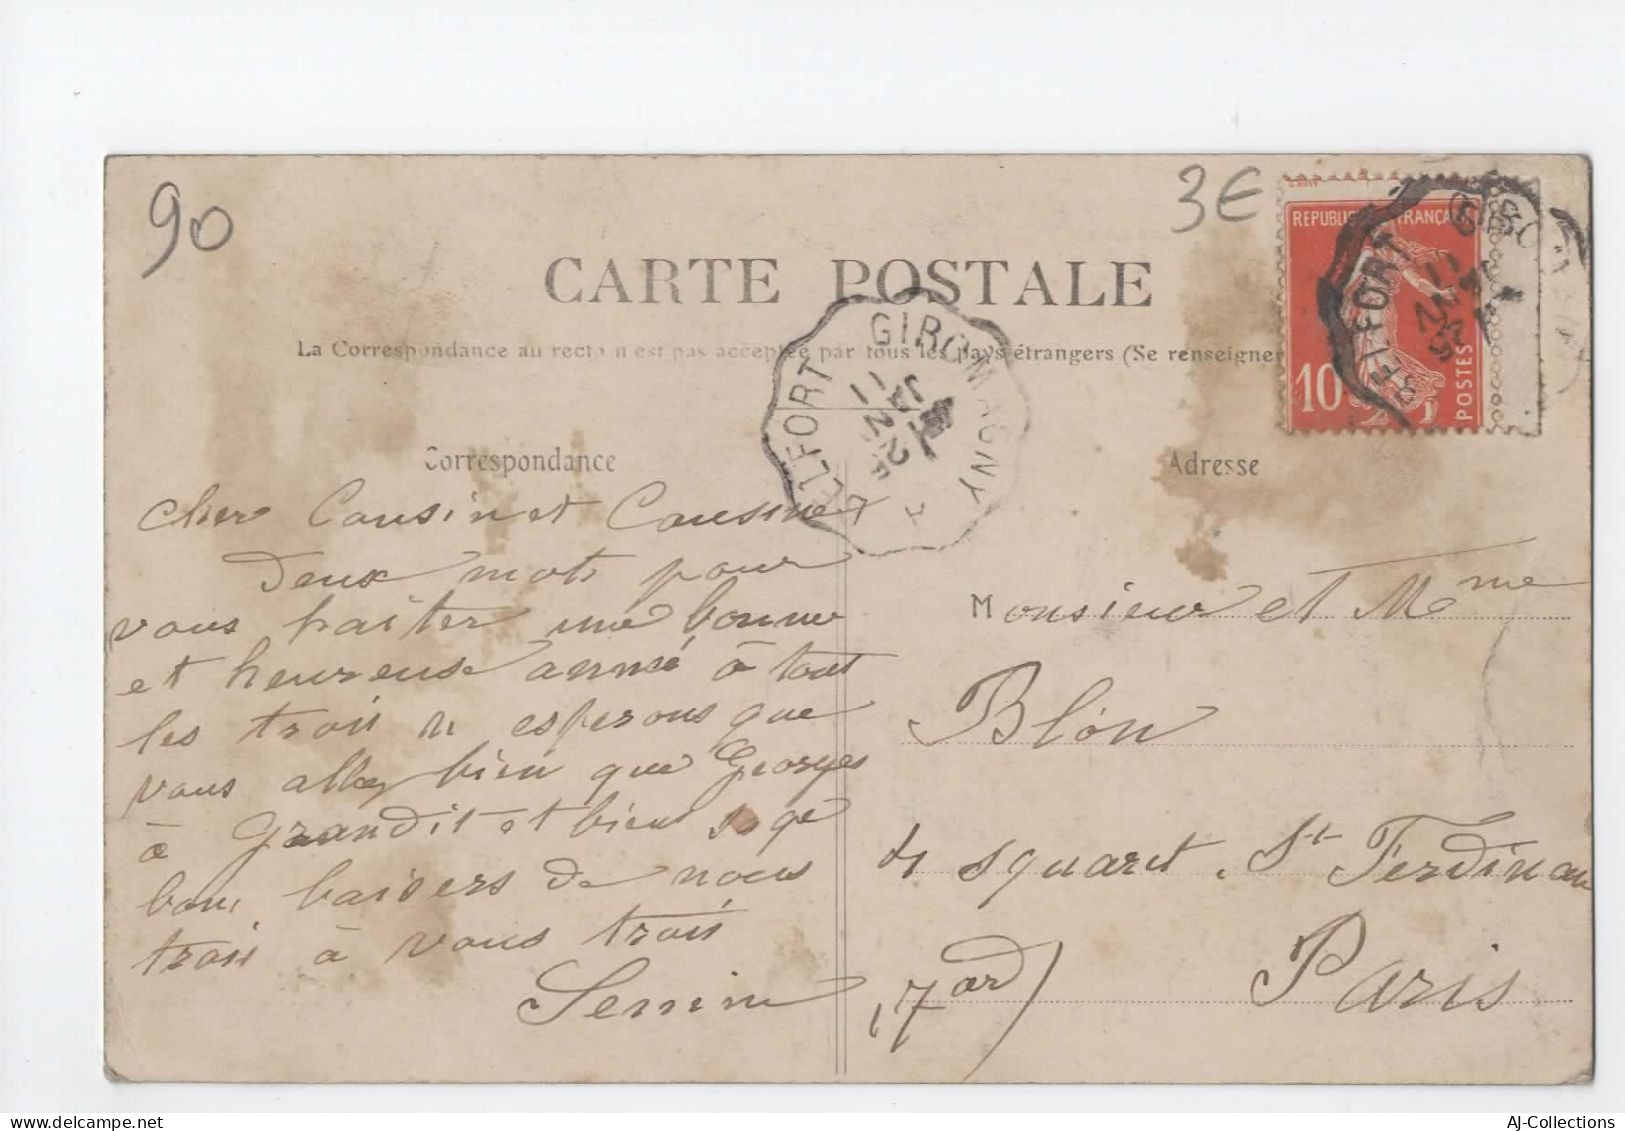 90
3€
CARTE POSTALE
La Correspondance au recto n'est pas acceptée par tous les pays étrangers (Se renseigner
REPUBLIQUE FRANÇAISE
10
POSTES
BELFORT GIROMAGNY
11
JANV
BELFORT A GIROMAGNY
11
JANV
Correspondance
Adresse
cher Cousin et Cousine
Deux mots pour
vous haiter une bonne
et heureuse année à tout
les trois n esperons que
vous allez bien que Georges
à Grandit et bien sage
bons baisers de nous
trois à vous trois
Monsieur et Mme
Blon
4 squaret St Ferdinan
Paris
17 ard)
AJ-Collections